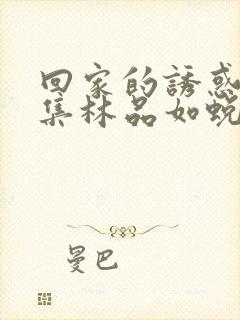 回家的誘惑
集林品如蛻
曼巴